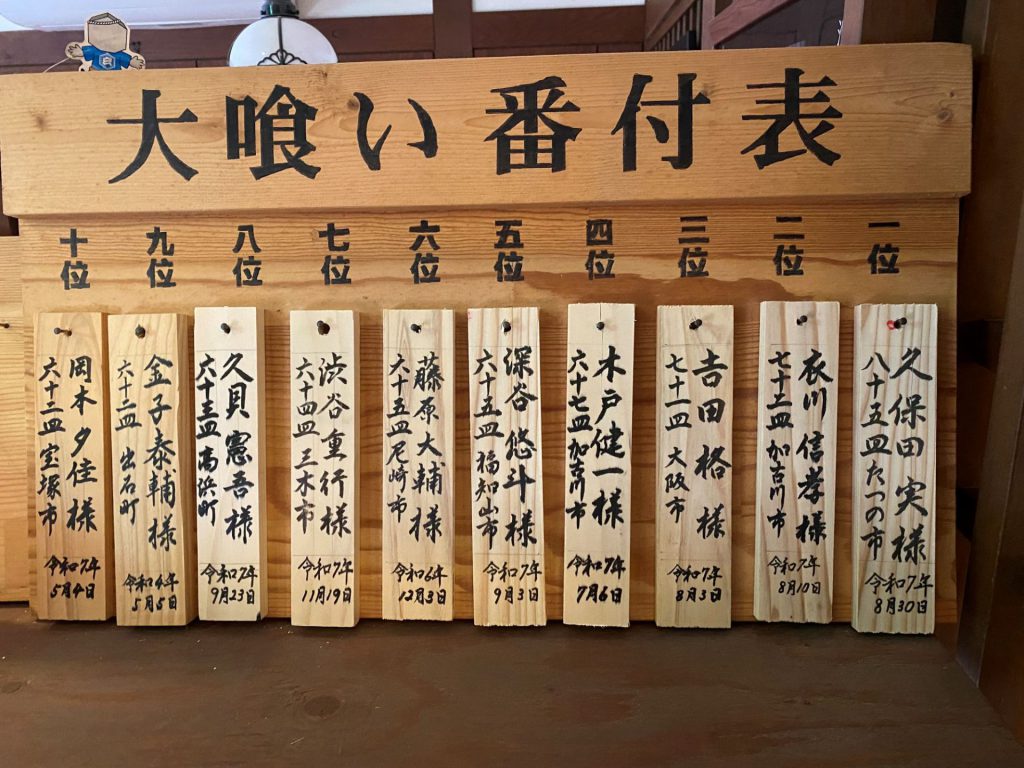 大喰い番付表
一位
久保田実様
八十五皿たつの市
令和7年
8月30日
二位
衣川信孝様
七十二皿加古川市
令和7年
8月10日
三位
吉田格様
七十一皿大阪市
令和7年
8月3日
四位
木戸健一様
六十七皿加古川市
令和7年
7月6日
五位
深谷悠斗様
六十五皿福知山市
令和7年
9月3日
六位
藤原大輔様
六十五皿尼崎市
令和6年
12月3日
七位
渋谷重行様
六十四皿三木市
令和7年
11月19日
八位
久貝憲吾様
六十三皿高浜町
令和7年
9月23日
九位
金子泰輔様
六十二皿出石町
令和4年
5月5日
十位
岡本夕佳様
六十二皿宝塚市
令和7年
5月4日